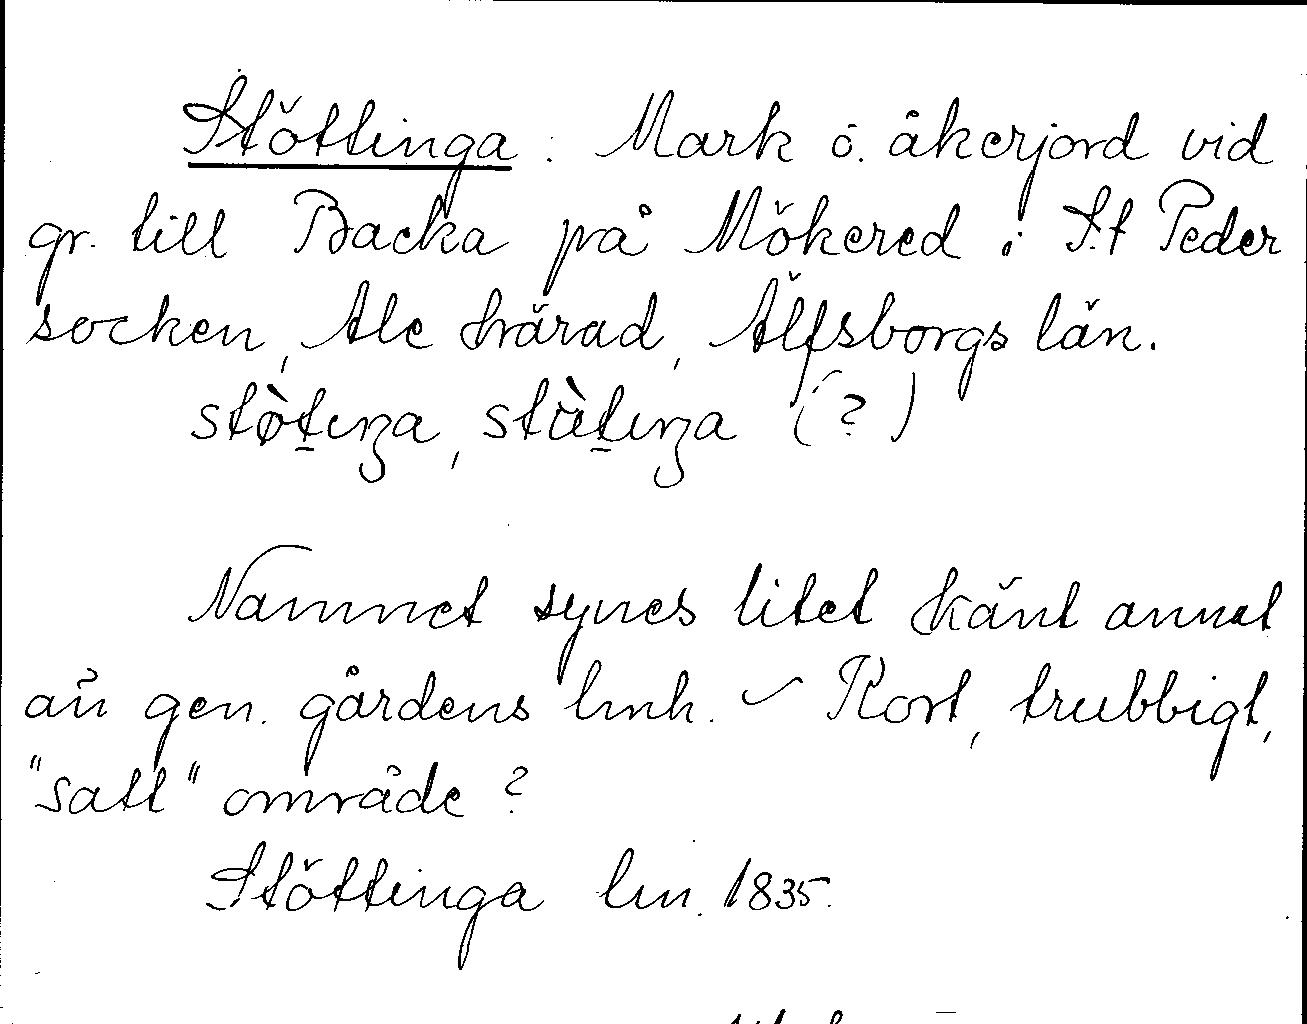 Stöttinga: Mark o. åkerjord vid
gr. till Backa på Mökered i S:t Peder
socken, Ale härad, Älfsborgs län.
stø̀t̲ıŋa, stùt̲ıŋa (?)
Namnet synes litet känt annat
än gen. gårdens lmh. – Kort, trubbigt,
"satt" område?
Stöttinga lm. 1835.